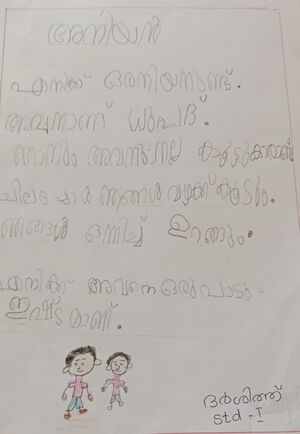 അനിയൻ
എനിക്ക് ഒരനിയനുണ്ട്.
അവനാണ് ധ്രുപദ്.
ഞാനും അവനും നല്ല കൂട്ടുകാരാണ്
ചിലപ്പോൾ ഞങ്ങൾ വഴക്ക് കൂടും.
ഞങ്ങൾ ഒന്നിച്ച് ഉറങ്ങും.
എനിക്ക് അവനെ ഒരുപാടു
ഇഷ്ടമാണ്.
ദർശിത്ത്
std - I